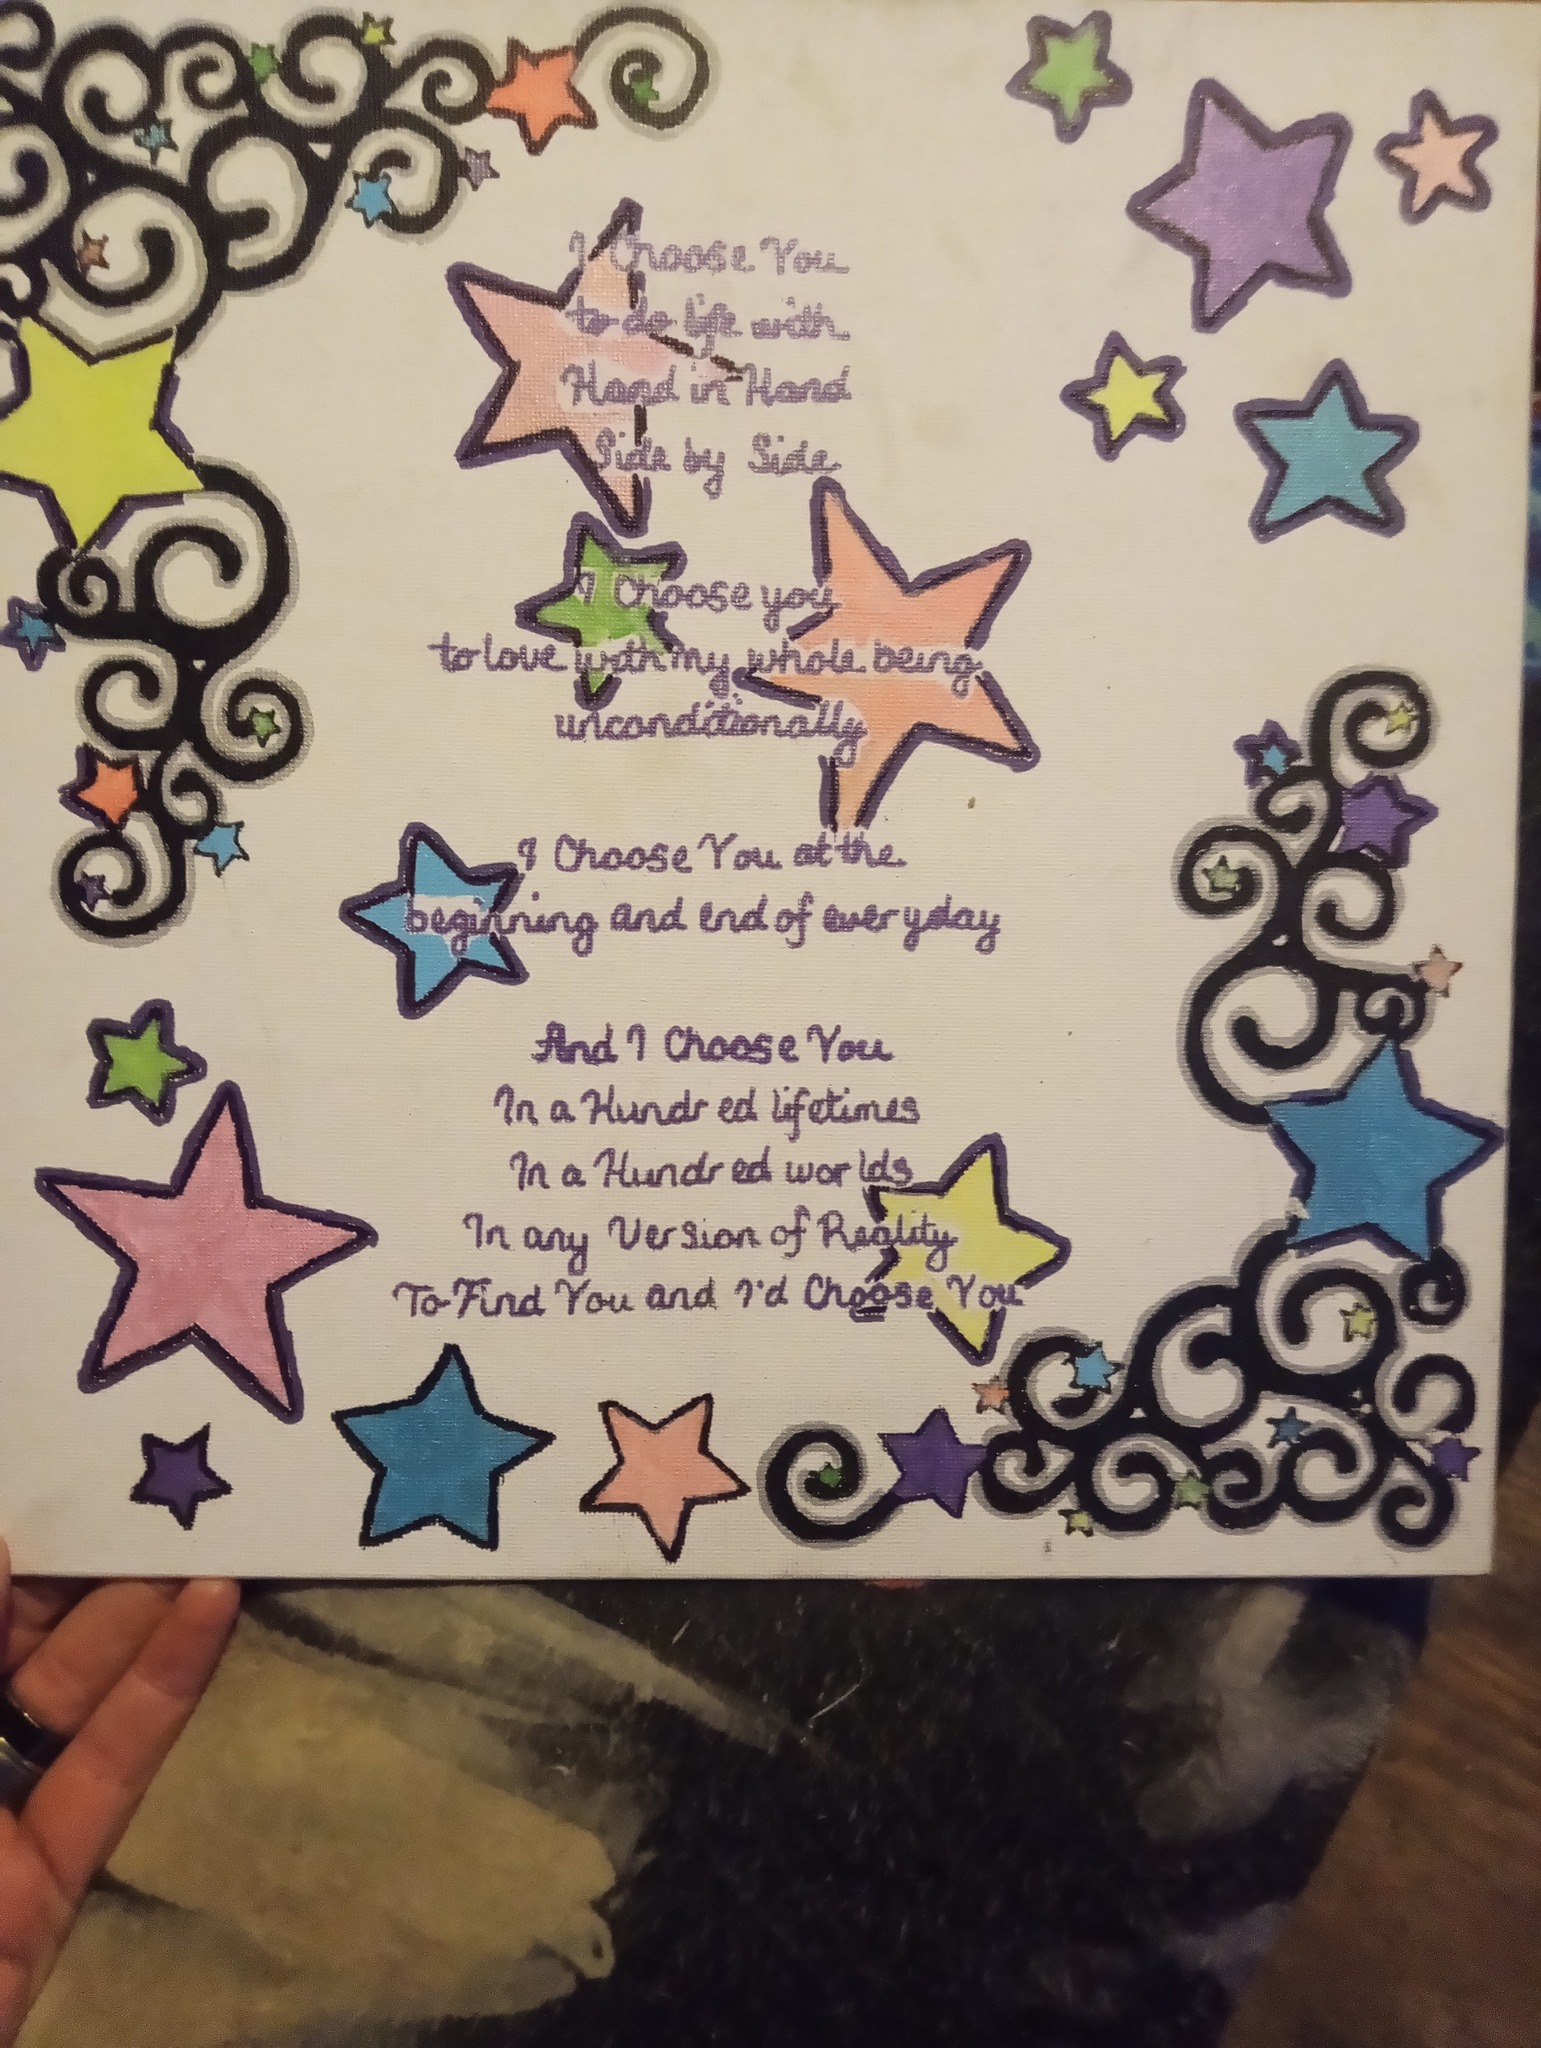 I Choose You
to do life with
Hand in Hand
Side by Side
I Choose you
to love with my whole being
unconditionally
I Choose You at the
beginning and end of everyday
And I Choose You
In a Hundred lifetimes
In a Hundred worlds
In any Version of Reality
To Find You and I'd Choose You